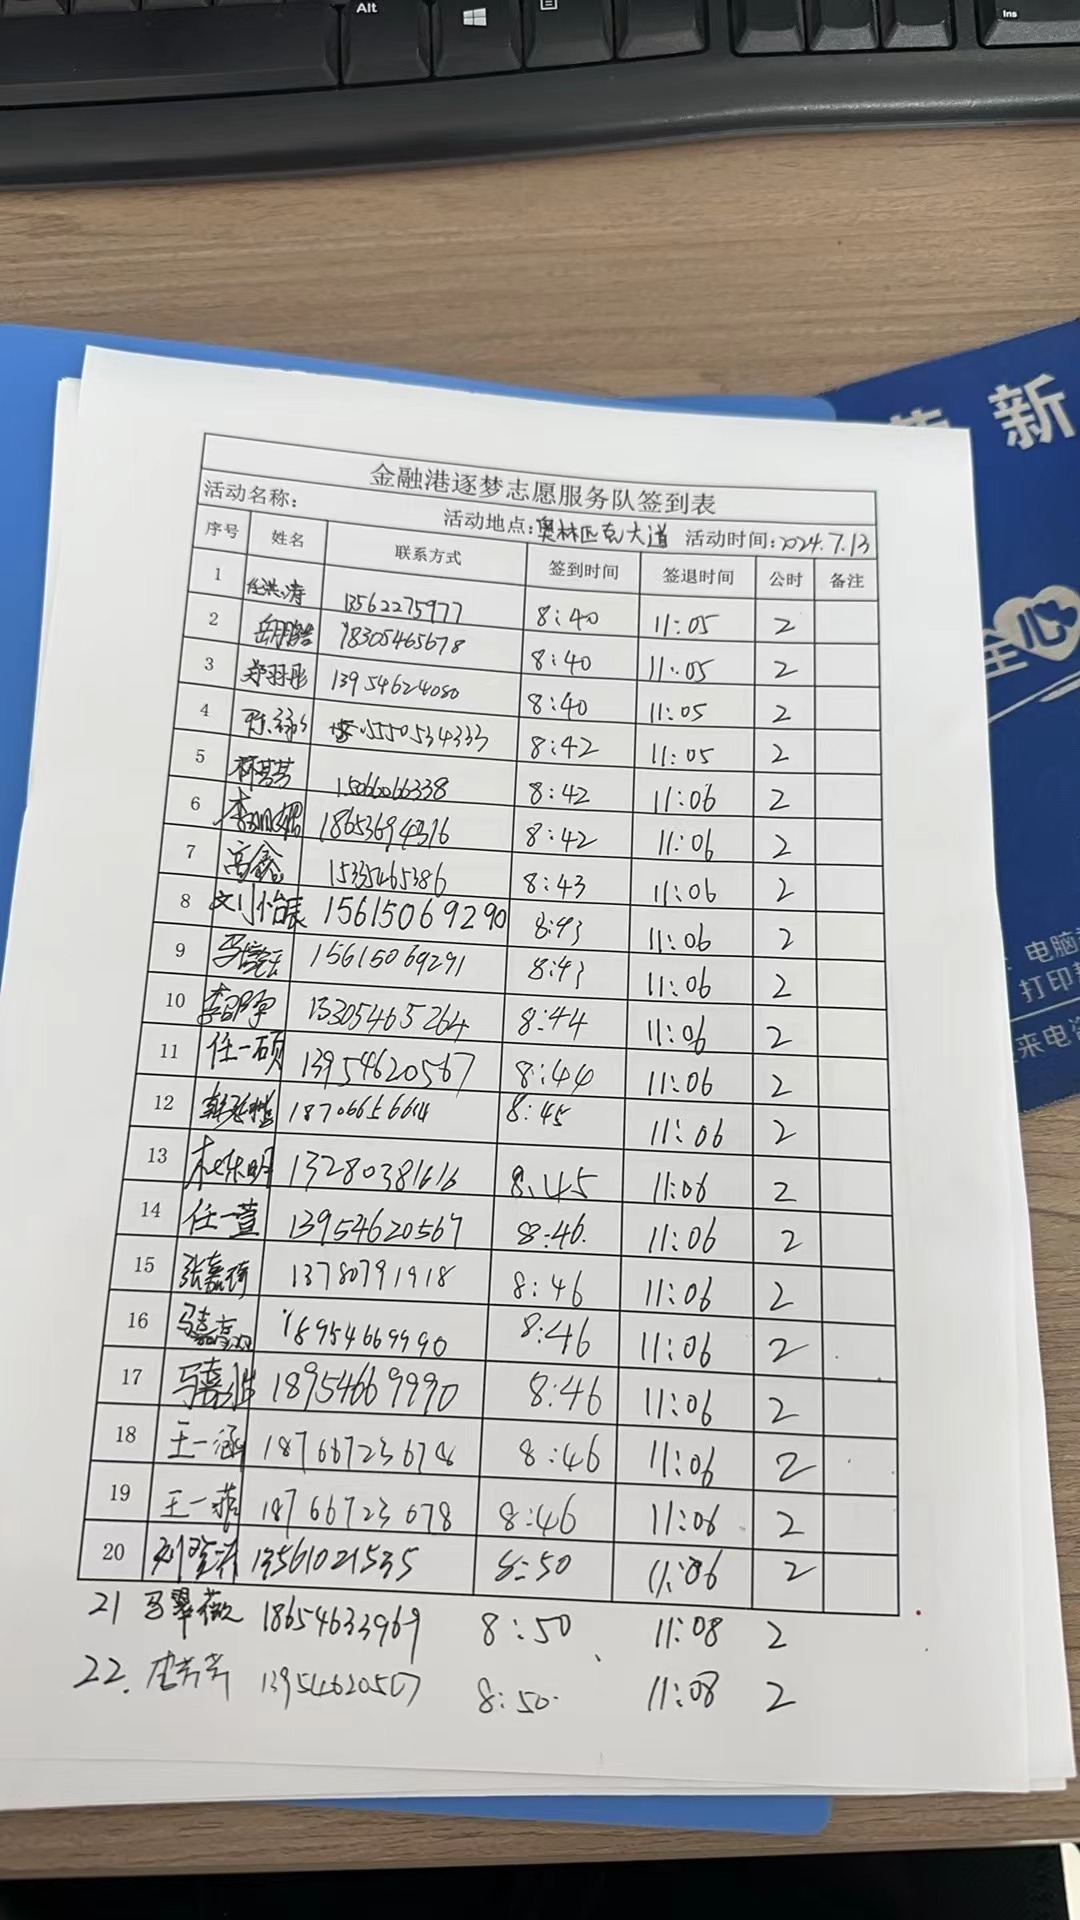 Alt
Ins
新
金融港逐梦志愿服务队签到表
活动名称: 活动地点:奥林匹克大道 活动时间:2024.7.13
序号 姓名 联系方式 签到时间 签退时间 公时 备注
1 任洪涛 13562275977 8:40 11:05 2
2 岳鹏皓 18305465678 8:40 11:05 2
3 郑羽彤 13954624080 8:40 11:05 2
4 15550534333 8:42 11:05 2
5 林芸芸 15066066338 8:42 11:06 2
6 18653694316 8:42 11:06 2
7 高鑫 15335465386 8:43 11:06 2
8 刘怡辰 15615069290 8:43 11:06 2
9 15615069291 8:43 11:06 2
10 13305465264 8:44 11:06 2
11 任一硕 13954620567 8:44 11:06 2
12 18706656614 8:45 11:06 2
13 13280381616 8:45 11:06 2
14 任一萱 13954620567 8:46 11:06 2
15 张嘉琦 13780791918 8:46 11:06 2
16 18954669990 8:46 11:06 2
17 18954669990 8:46 11:06 2
18 王一涵 18766723678 8:46 11:06 2
19 王一菲 18766723678 8:46 11:06 2
20 13561021535 8:50 11:06 2
21 马翠薇 18654633969 8:50 11:08 2
22. 13954620567 8:50 11:08 2
全心
电脑
打印
来电